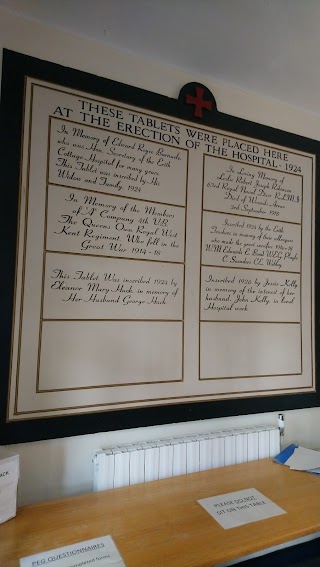 THESE TABLETS WERE PLACED HERE
AT THE ERECTION OF THE HOSPITAL · 1924
In Memory of Edward Royce
who was Hon. Secretary of the Erith
Cottage Hospital for many years
This Tablet was inscribed by His
Widow and Family. 1924
In Memory of the Members
of "A" Company 4th V.B.
The Queens Own Royal West
Kent Regiment. Who fell in the
Great War 1914-18
This Tablet Was inscribed 1924 by
Eleanor Mary Huck in memory of
Her Husband George Huck
In Loving Memory of
Joseph Robinson
63rd Royal Naval Divn
Died of Wounds
2nd September 1918
Inscribed 1924 by the Erith
Teachers in memory of their colleagues
who made the great sacrifice 1914-18
Inscribed 1926 by Jessie Kelly
in memory of the interest of her
husband, John Kelly, in local
Hospital work
PLEASE DO NOT
SIT ON THIS TABLE
PEG QUESTIONNAIRES
completed forms